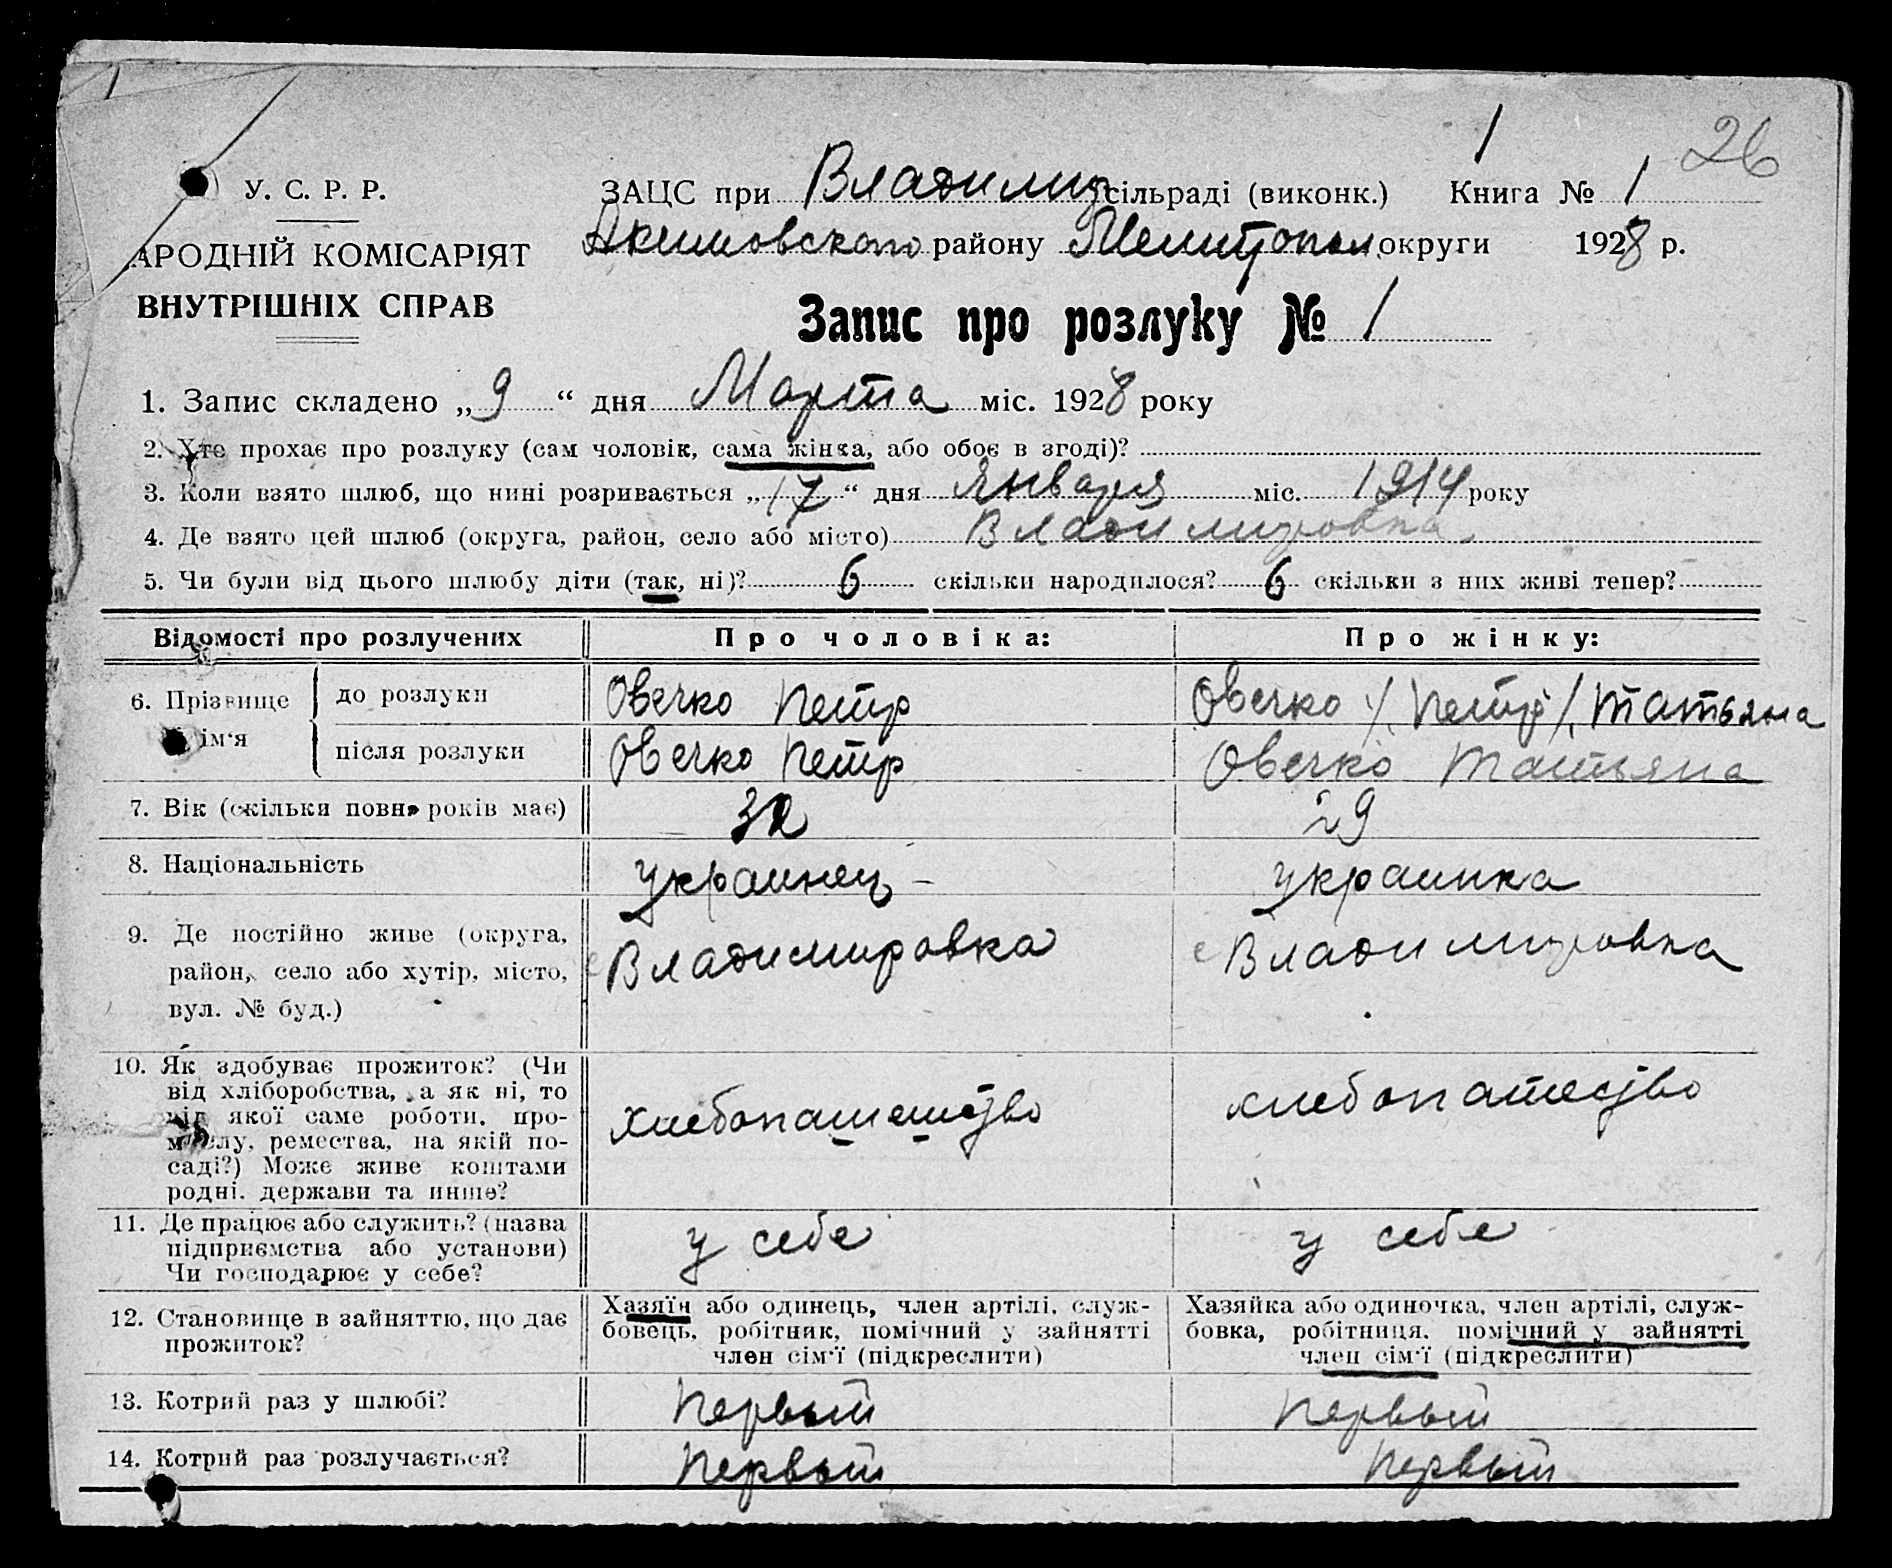 1 26
У. С. Р. Р. ЗАЦС при Владимир сільраді (виконк.) Книга № 1
Акимовского району Мелитопол округи 1928 р.
АРОДНІЙ КОМІСАРІЯТ
ВНУТРІШНІХ СПРАВ
Запис про розлуку № 1
1. Запис складено „ 9 “ дня Марта міс. 1928 року
2. Хто прохає про розлуку (сам чоловік, сама жінка, або обоє в згоді)?
3. Коли взято шлюб, що нині розривається „ 17 “ дня Января міс. 1914 року
4. Де взято цей шлюб (округа, район, село або місто) Владимировка
5. Чи були від цього шлюбу діти (так, ні)? 6 скільки народилося? 6 скільки з них живі тепер?
Відомості про розлучених Про чоловіка: Про жінку:
6. Прізвище ім'я
до розлуки Овечко Петр Овечко /Петр/ Татьяна
після розлуки Овечко Петр Овечко Татьяна
7. Вік (скільки повн. років має) 32 29
8. Національність украинец украинка
9. Де постійно живе (округа,
район, село або хутір, місто, с Владимировка с Владимировка
вул. № буд.)
10. Як здобуває прожиток? (Чи
від хліборобства, а як ні, то
від якої саме роботи, про-
мислу, ремества, на якій по-
саді?) Може живе коштами
родні, держави та инше?
хлебопашество хлебопашество
11. Де працює або служить? (назва
підприємства або установи)
Чи господарює у себе?
у себе у себе
12. Становище в зайняттю, що дає
прожиток?
Хазяїн або одинець, член артілі, служ-
бовець, робітник, помічний у зайнятті
член сім'ї (підкреслити)
Хазяйка або одиночка, член артілі, служ-
бовка, робітниця, помічний у зайнятті
член сім'ї (підкреслити)
13. Котрий раз у шлюбі? Первый Первый
14. Котрий раз розлучається? Первый Первый